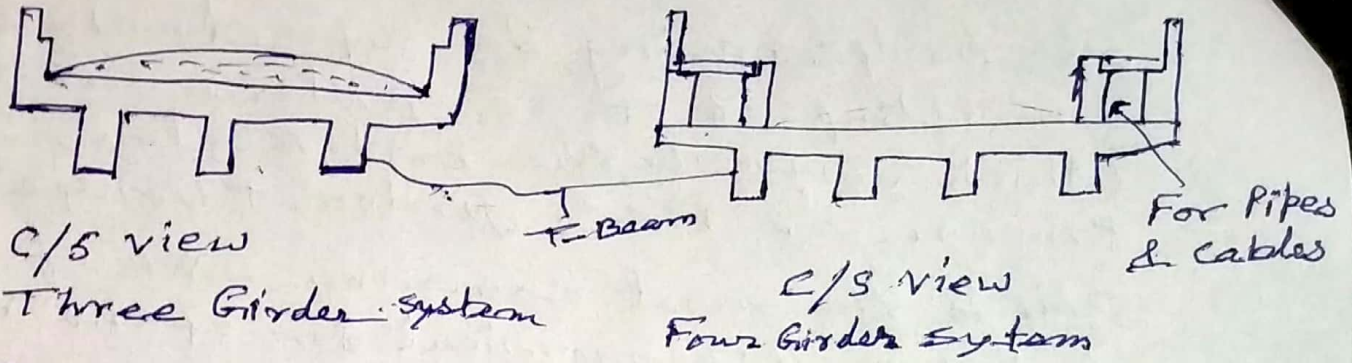 C/S view
Three Girder system
T-Beam
C/S view
Four Girder sytem
For Pipes
& cables